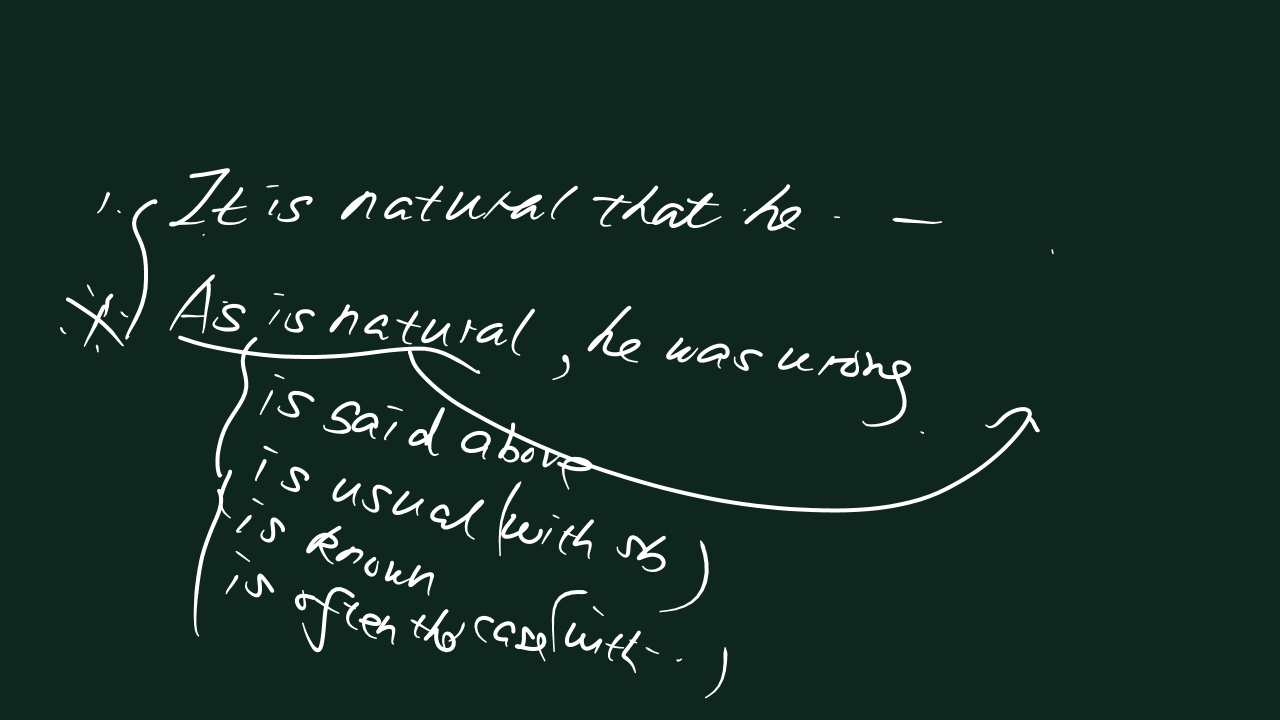 1. It is natural that he - —
※ As is natural, he was wrong.
is said above
is usual (with sb)
is known
is often the case (with - ..)